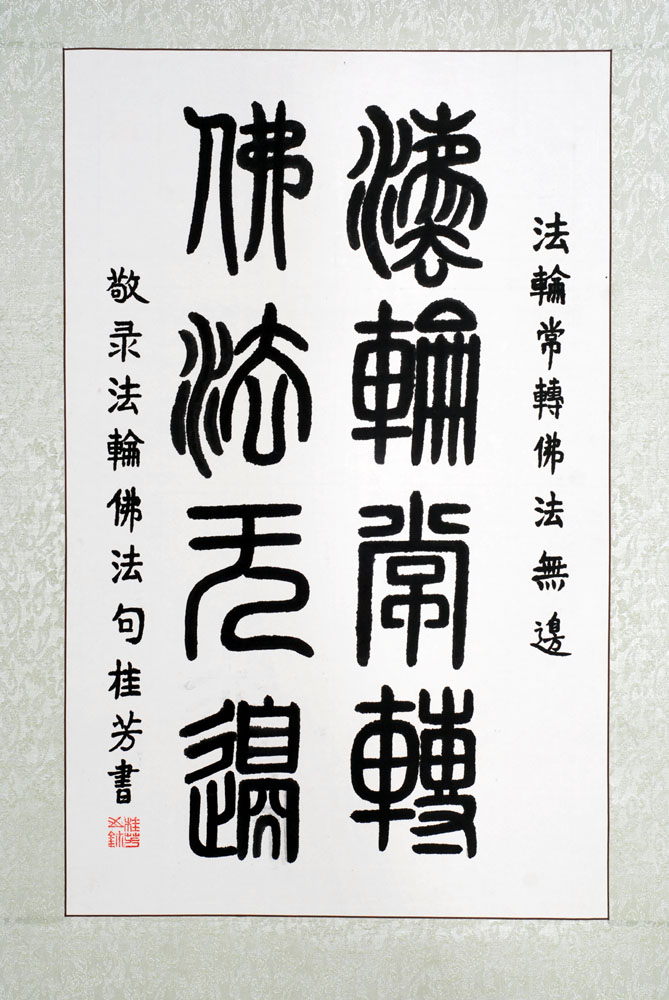 法輪常轉佛法無邊
灋輪常轉
佛法无邊
敬录法輪佛法句桂芳書